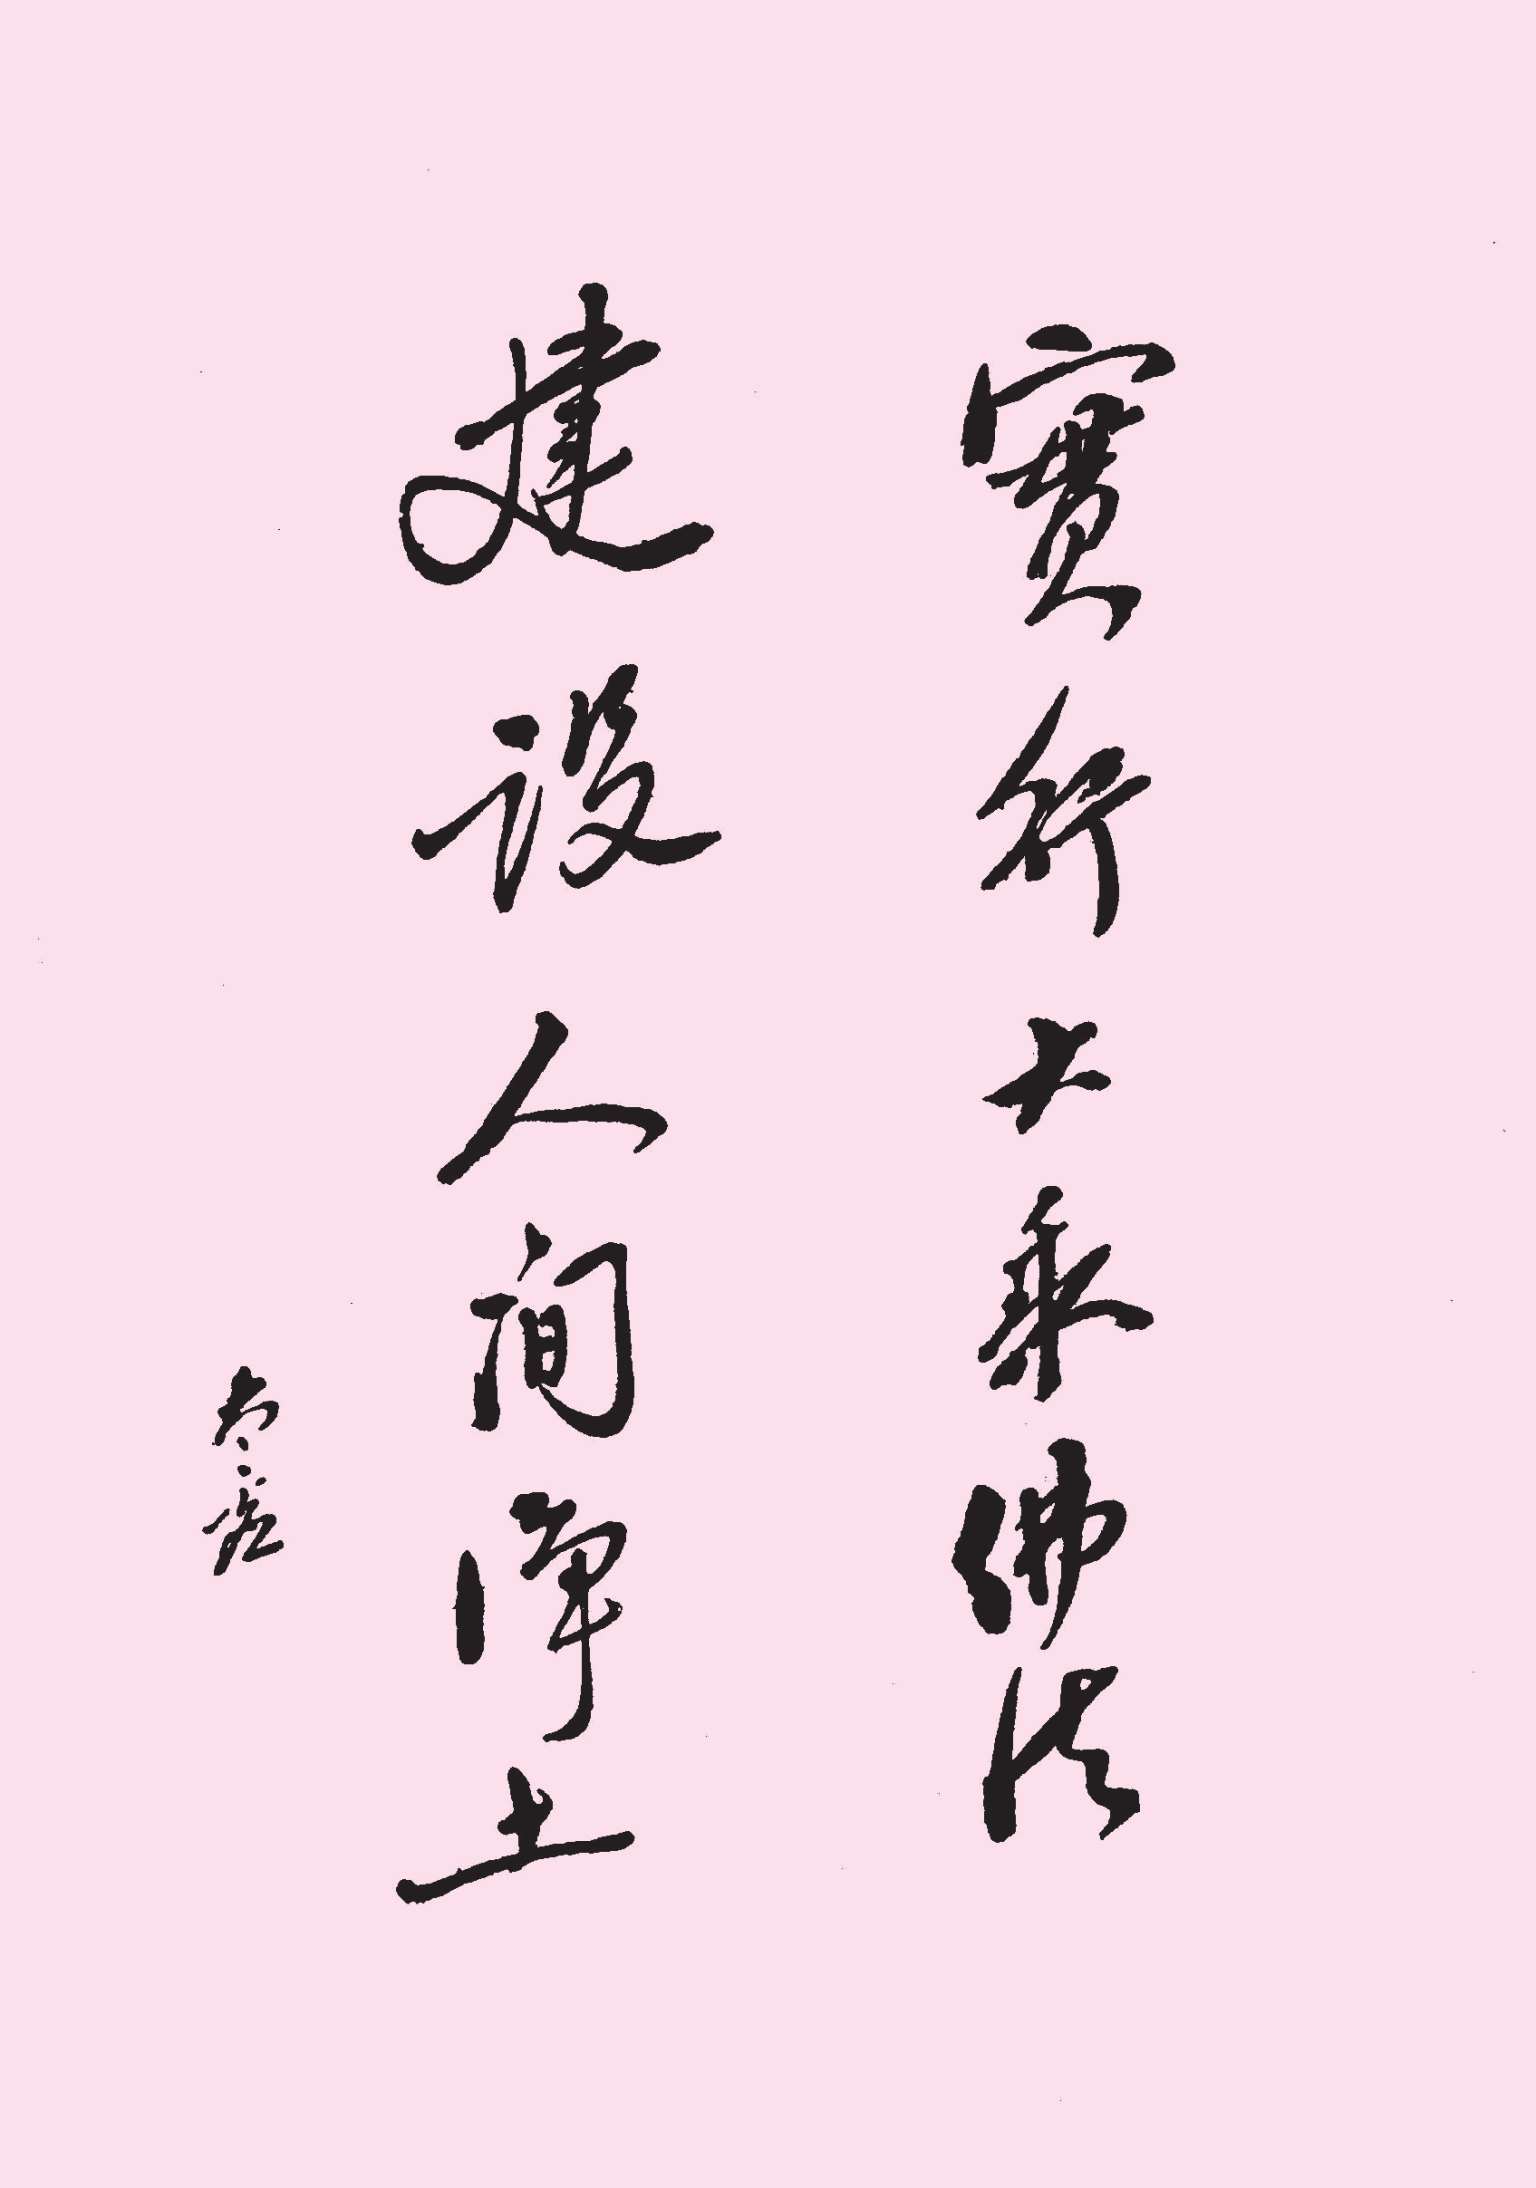 實行大乘佛法
建設人間淨土
太虛